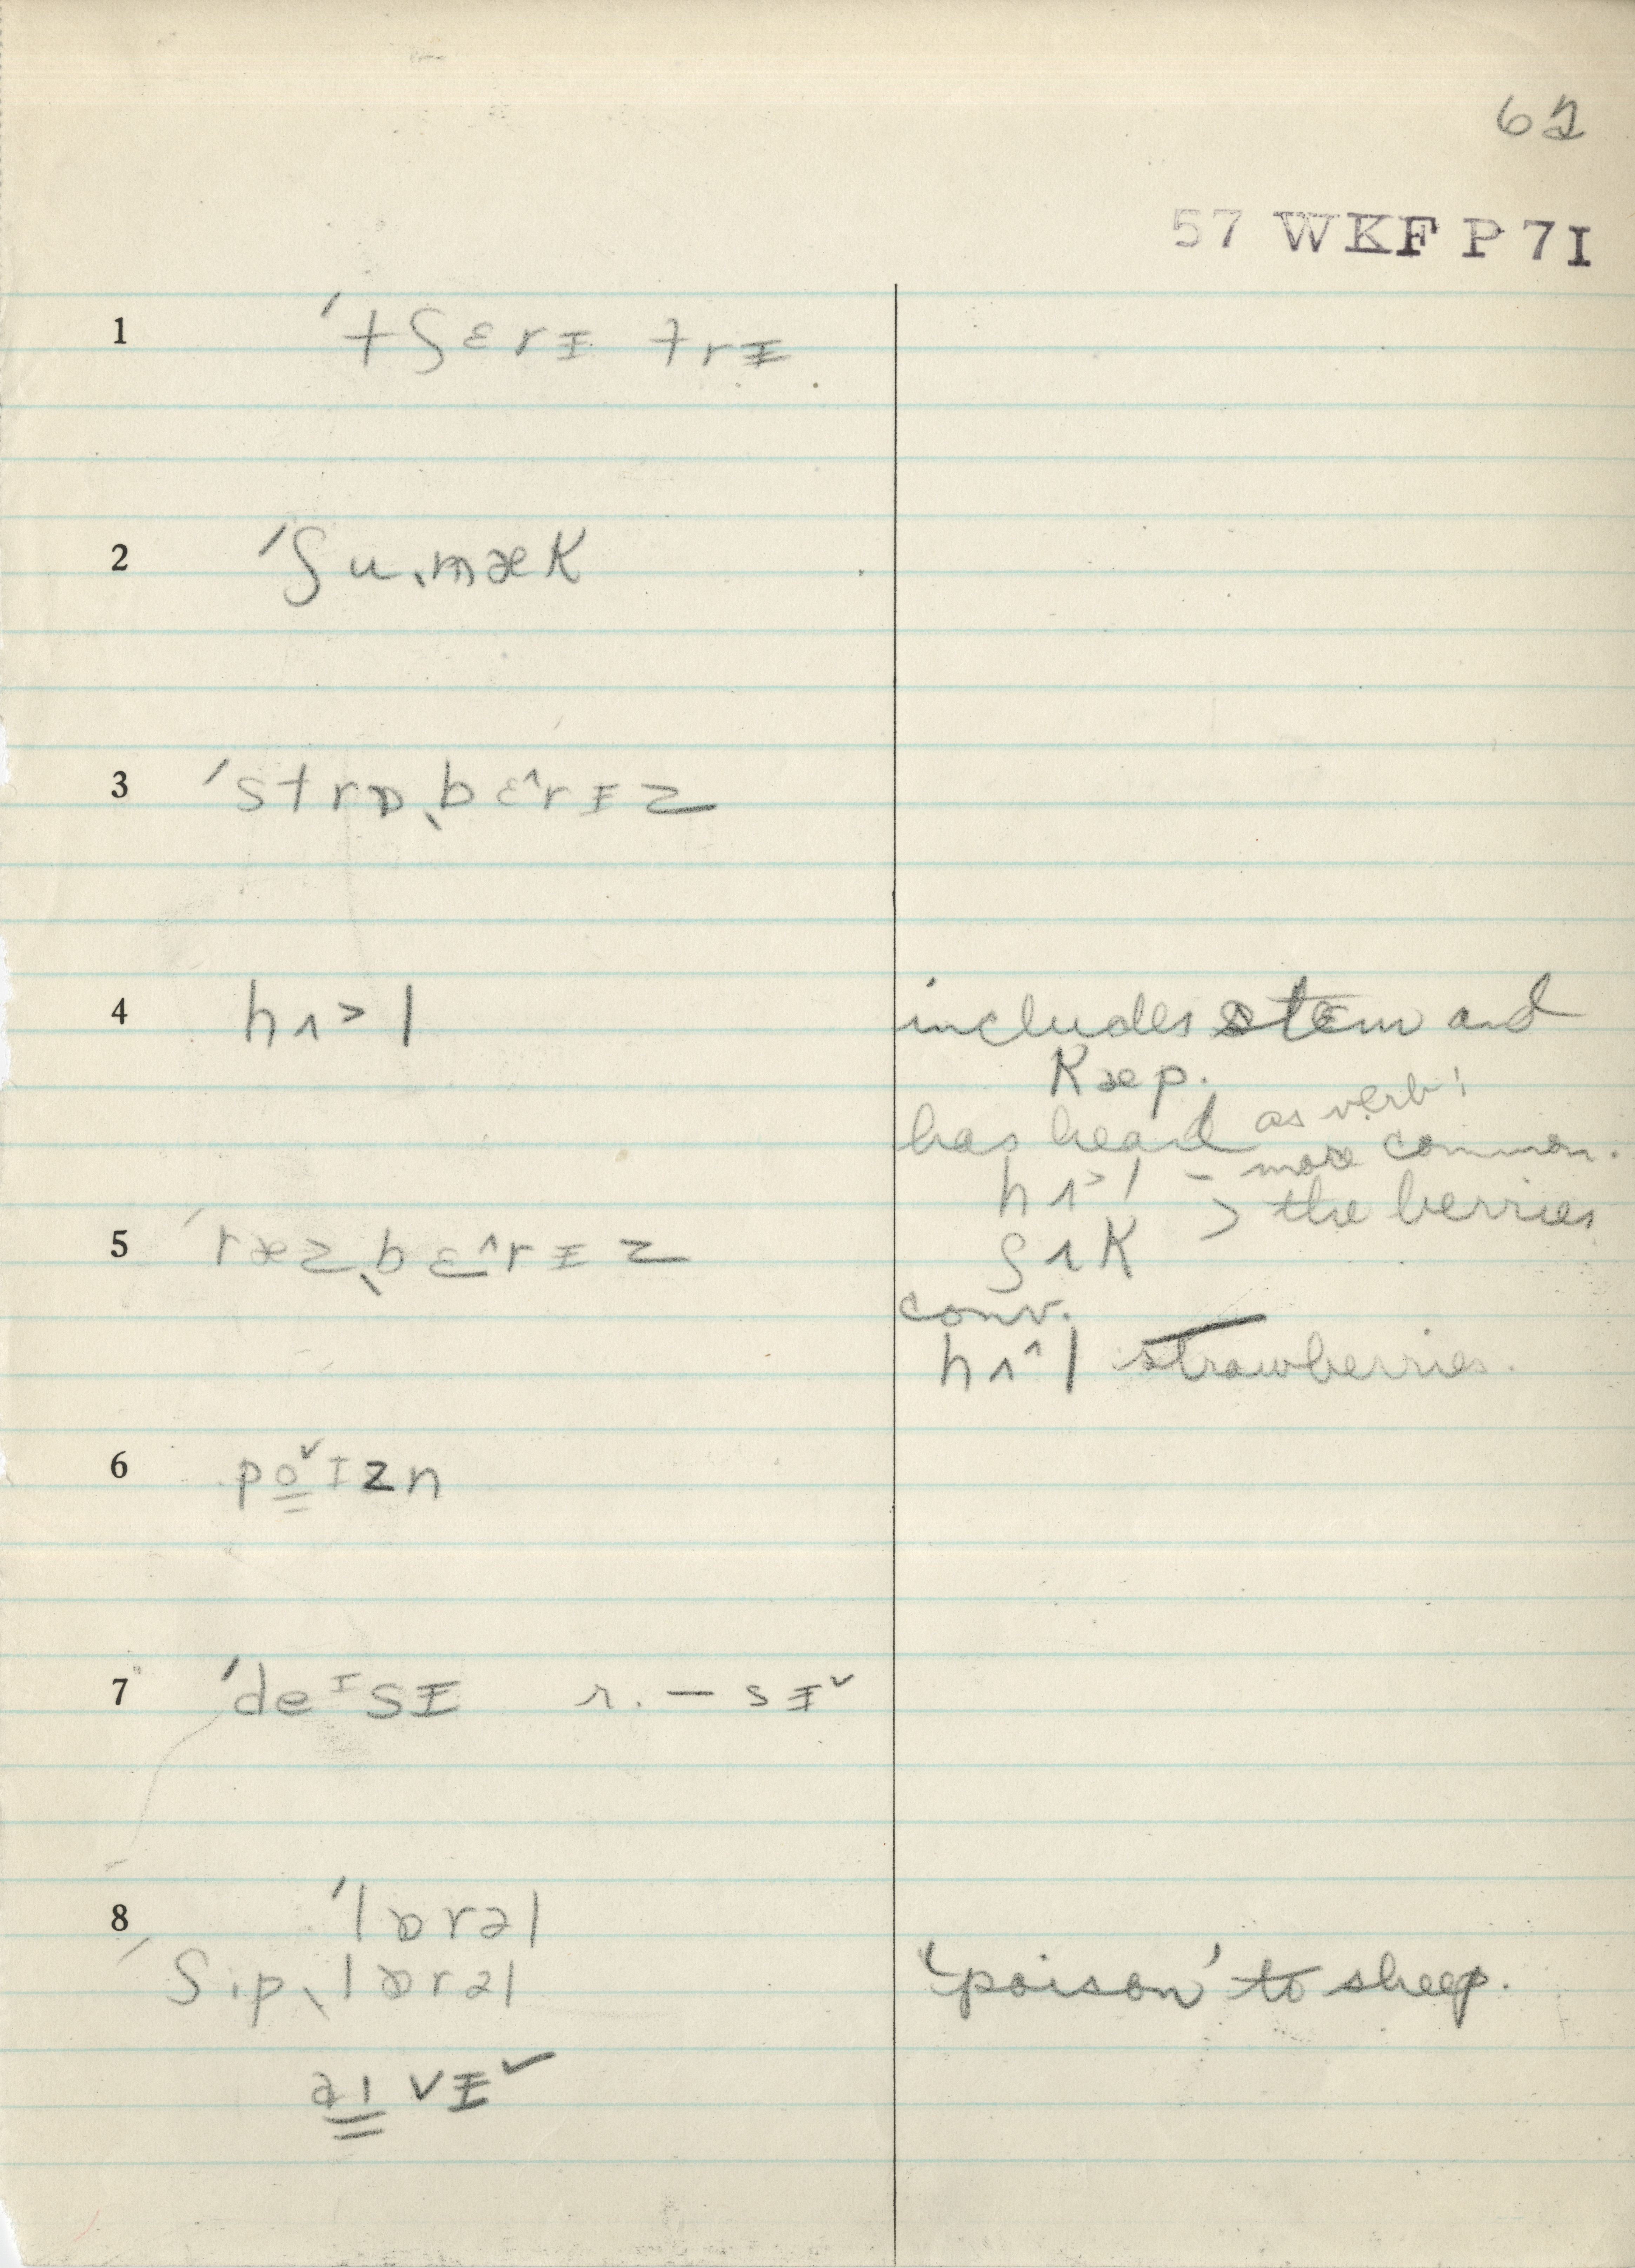 62
57 WKF P 7I
1 ˈtʃɛrɪ trɪ
2 ˈʃuˌmæk
3 ˈstrɒˌbɛ^rɪz
4 hʌ>l
includes stem and
kæp.
has heard as verb!
hʌ>l – more common.
ʃʌk > the berries
5 ˈræzˌbɛ^rɪz
conv.
hʌ^l strawberries.
6 po̳ˇɪzn
7 ˈdeᴵsɪ r. — sɪˇ
8 ˈlɒrəl
ˈʃipˌlɒrəl
'poison' to sheep.
aɪvɪˇ